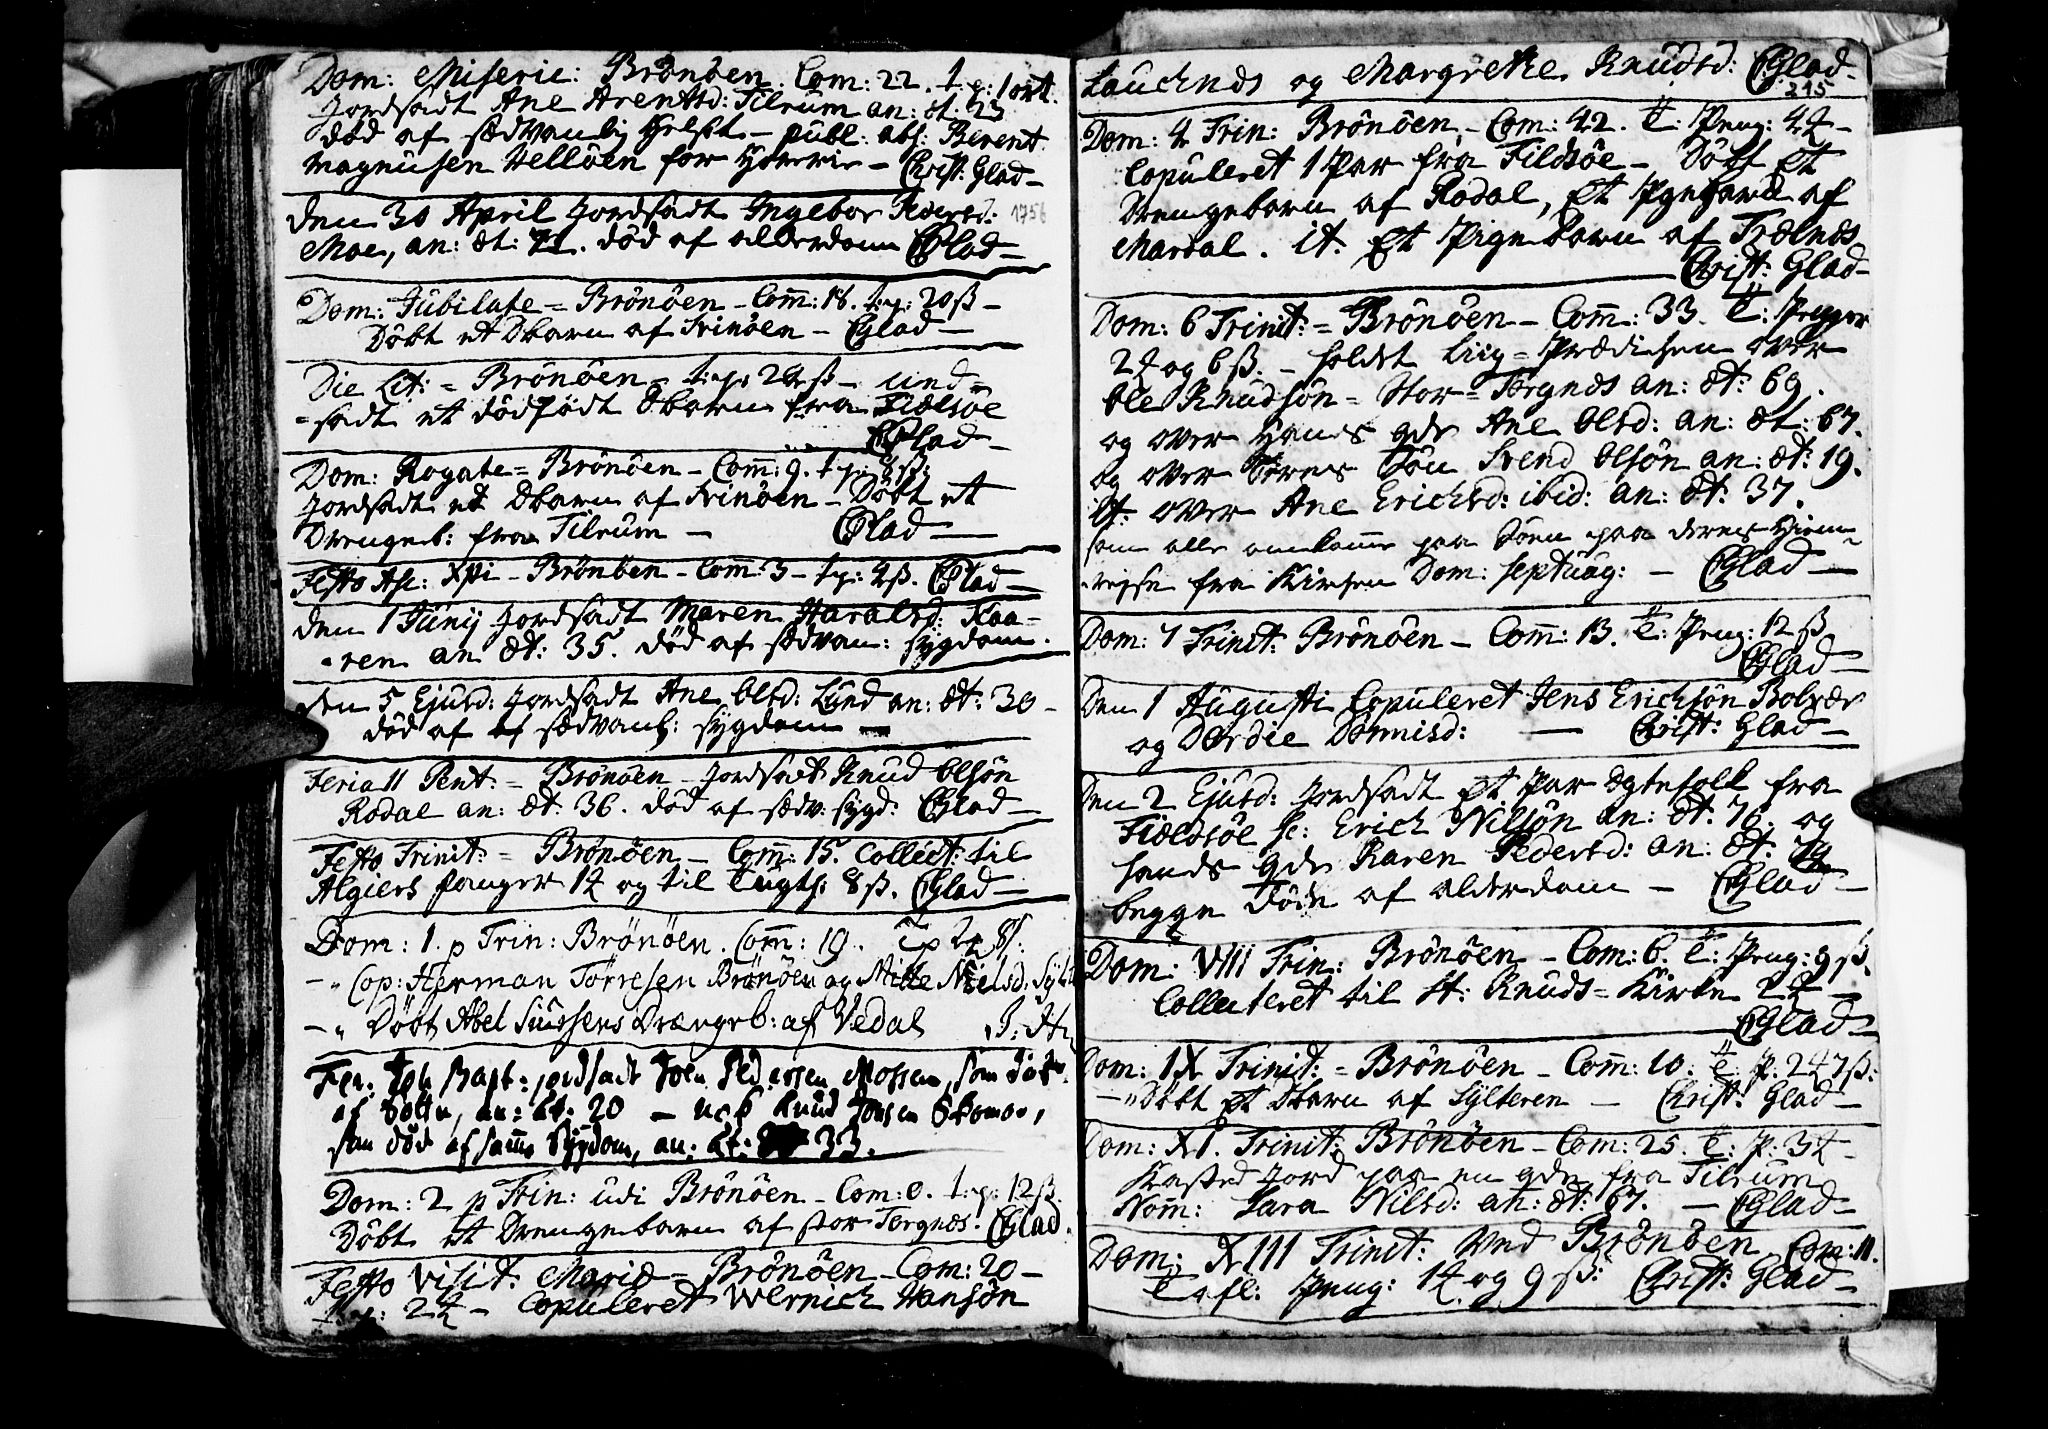 Dom: Miseric: Brönöen Com: 22. t.p: 1 ort.
Jordsadt Ane Arentsd: Tilrum an: æt: 23
död af sædvanlig - publ: abs: Berent
Magnusen Vellöen for - Christ: Glad-
den 30 April Jordsadt Ingebor Pedersd: 1756
Moe, an: æt: 71. död af alderdom CGlad-
Dom: Jubilate = Brönöen - Com̄: 16. t.p: 20 ß -
Döbt et Dbarn af Trinöen - CGlad-
Die Lit: = Brönöen - t.p: 24 ß - und=
=sadt et dödfödt Dbarn fra Tiælsöe
CGlad-
Dom: Rogate = Brönöen - Com̄: 9. t.p: 8 ß:
Jordsadt et Dbarn af Trinöen - Döbt et
Drengeb: fra Tilrum - CGlad-
Festo Asc: Xsti - Brönöen - Com̄: 3 - t.p: 4 ß. CGlad-
den 1 Junij Jordsadt Maren Haralsd: Kaa-
=ren an æt: 35. död af sædvan: sygdom.
den 5 Ejusd: Jordsadt Ane Olsd: Lund an: æt: 30-
död af af sædvanl: sygdom -
Feria II Pent: = Brönöen - Jordsadt Knud Olsön
Rodal an: æt: 36. död af sædv: sygd: CGlad-
Festo Trinit: = Brönöen - Com̄: 15. Collect: til
Algiers fanger 1 og til Tugth: 8 ß. CGlad-
Dom: 1. p Trin: Brönöen. Com̄: 19. Tp 8ß.
-„ Cop: Herman Torresen Brönöen og Mitte Nielsd:
-„ Döbt Abel Drængeb: af Vedal
Fer: Joh Bapt: jordsadt Joen Pedersen Mossen, som
af an: æt: 20 - nok Knud Jonsen
som död af samme Sygdom, an: æt: 33.
Dom: 2 p Trin: udi Brönöen - Com: 0. t.p: 12 ß.
Döbt et Drengebarn af stor Torgnes: CGlad.
Festo Visit: Mariæ = Brönöen - Com: 20 -
t.p: 2 - Copuleret Wernich Hansön
og Margrethe Knudsd: CGlad-
215
Dom: 4 Trin: Brönöen - Com: 42. T: Peng: 4 -
Copuleret 1 Par fra Tildsöe - Döbt Et
Drengebarn af Rodal, Et Pigebarn af
Mardal. it. Et Pigebarn af Trælnes
Christ: Glad-
Dom: 6 Trinit: = Brönöen - Com̄: 33. T: Penger
2 og 6 ß. - holdet Liig=Prædichen over
Ole Knudsön = Stor=Torgnes an: æt: 69.
og over hands qde Ane Olsd: an: æt: 67.
og over deres Sön Svend Olsön an: æt: 19.
it: over Ane Erichsd: ibid: an: æt: 37.
som alle omkomme paa Söen paa deres Hiem=
=rejse fra Kirken Dom: Septuag: - CGlad-
Dom: 7 Trinit: Brönöen - Com̄: 13. T: Peng: 12 ß
CGlad-
Den 1 Augusti Copuleret Jens Erichsön Bolvær
og Dordie Dönnisd: - Christ: Glad-
Den 2 Ejusd: Jordsadt Et Par Egtefolk fra
Tiældsöe sc: Erich Nilsön an: æt: 76. og
hands qde Karen Pedersd: an: æt:
begge döde af alderdom - CGlad-
Dom: VIII Trin: Brönöen - Com: 6. T: Peng: 9 ß.
Collecteret til St: Knuds=Kirke 2
CGlad-
Dom: IX Trinit: = Brönöen - Com̄: 10. T: P:
-„Döbt Et Dbarn af Sylteren - Christ: Glad-
Dom: XI. Trinit: Brönöen - Com: 25. T: P: 3 -
Kasted Jord paa en qde fra Tilrum
Nom̄: Sara Nilsd: an: æt: 67. - CGlad-
Dom: XIII Trinit: Ved Brönöen Com: 11.
Tafl: Peng: 1 og 9 ß: Christ: Glad-